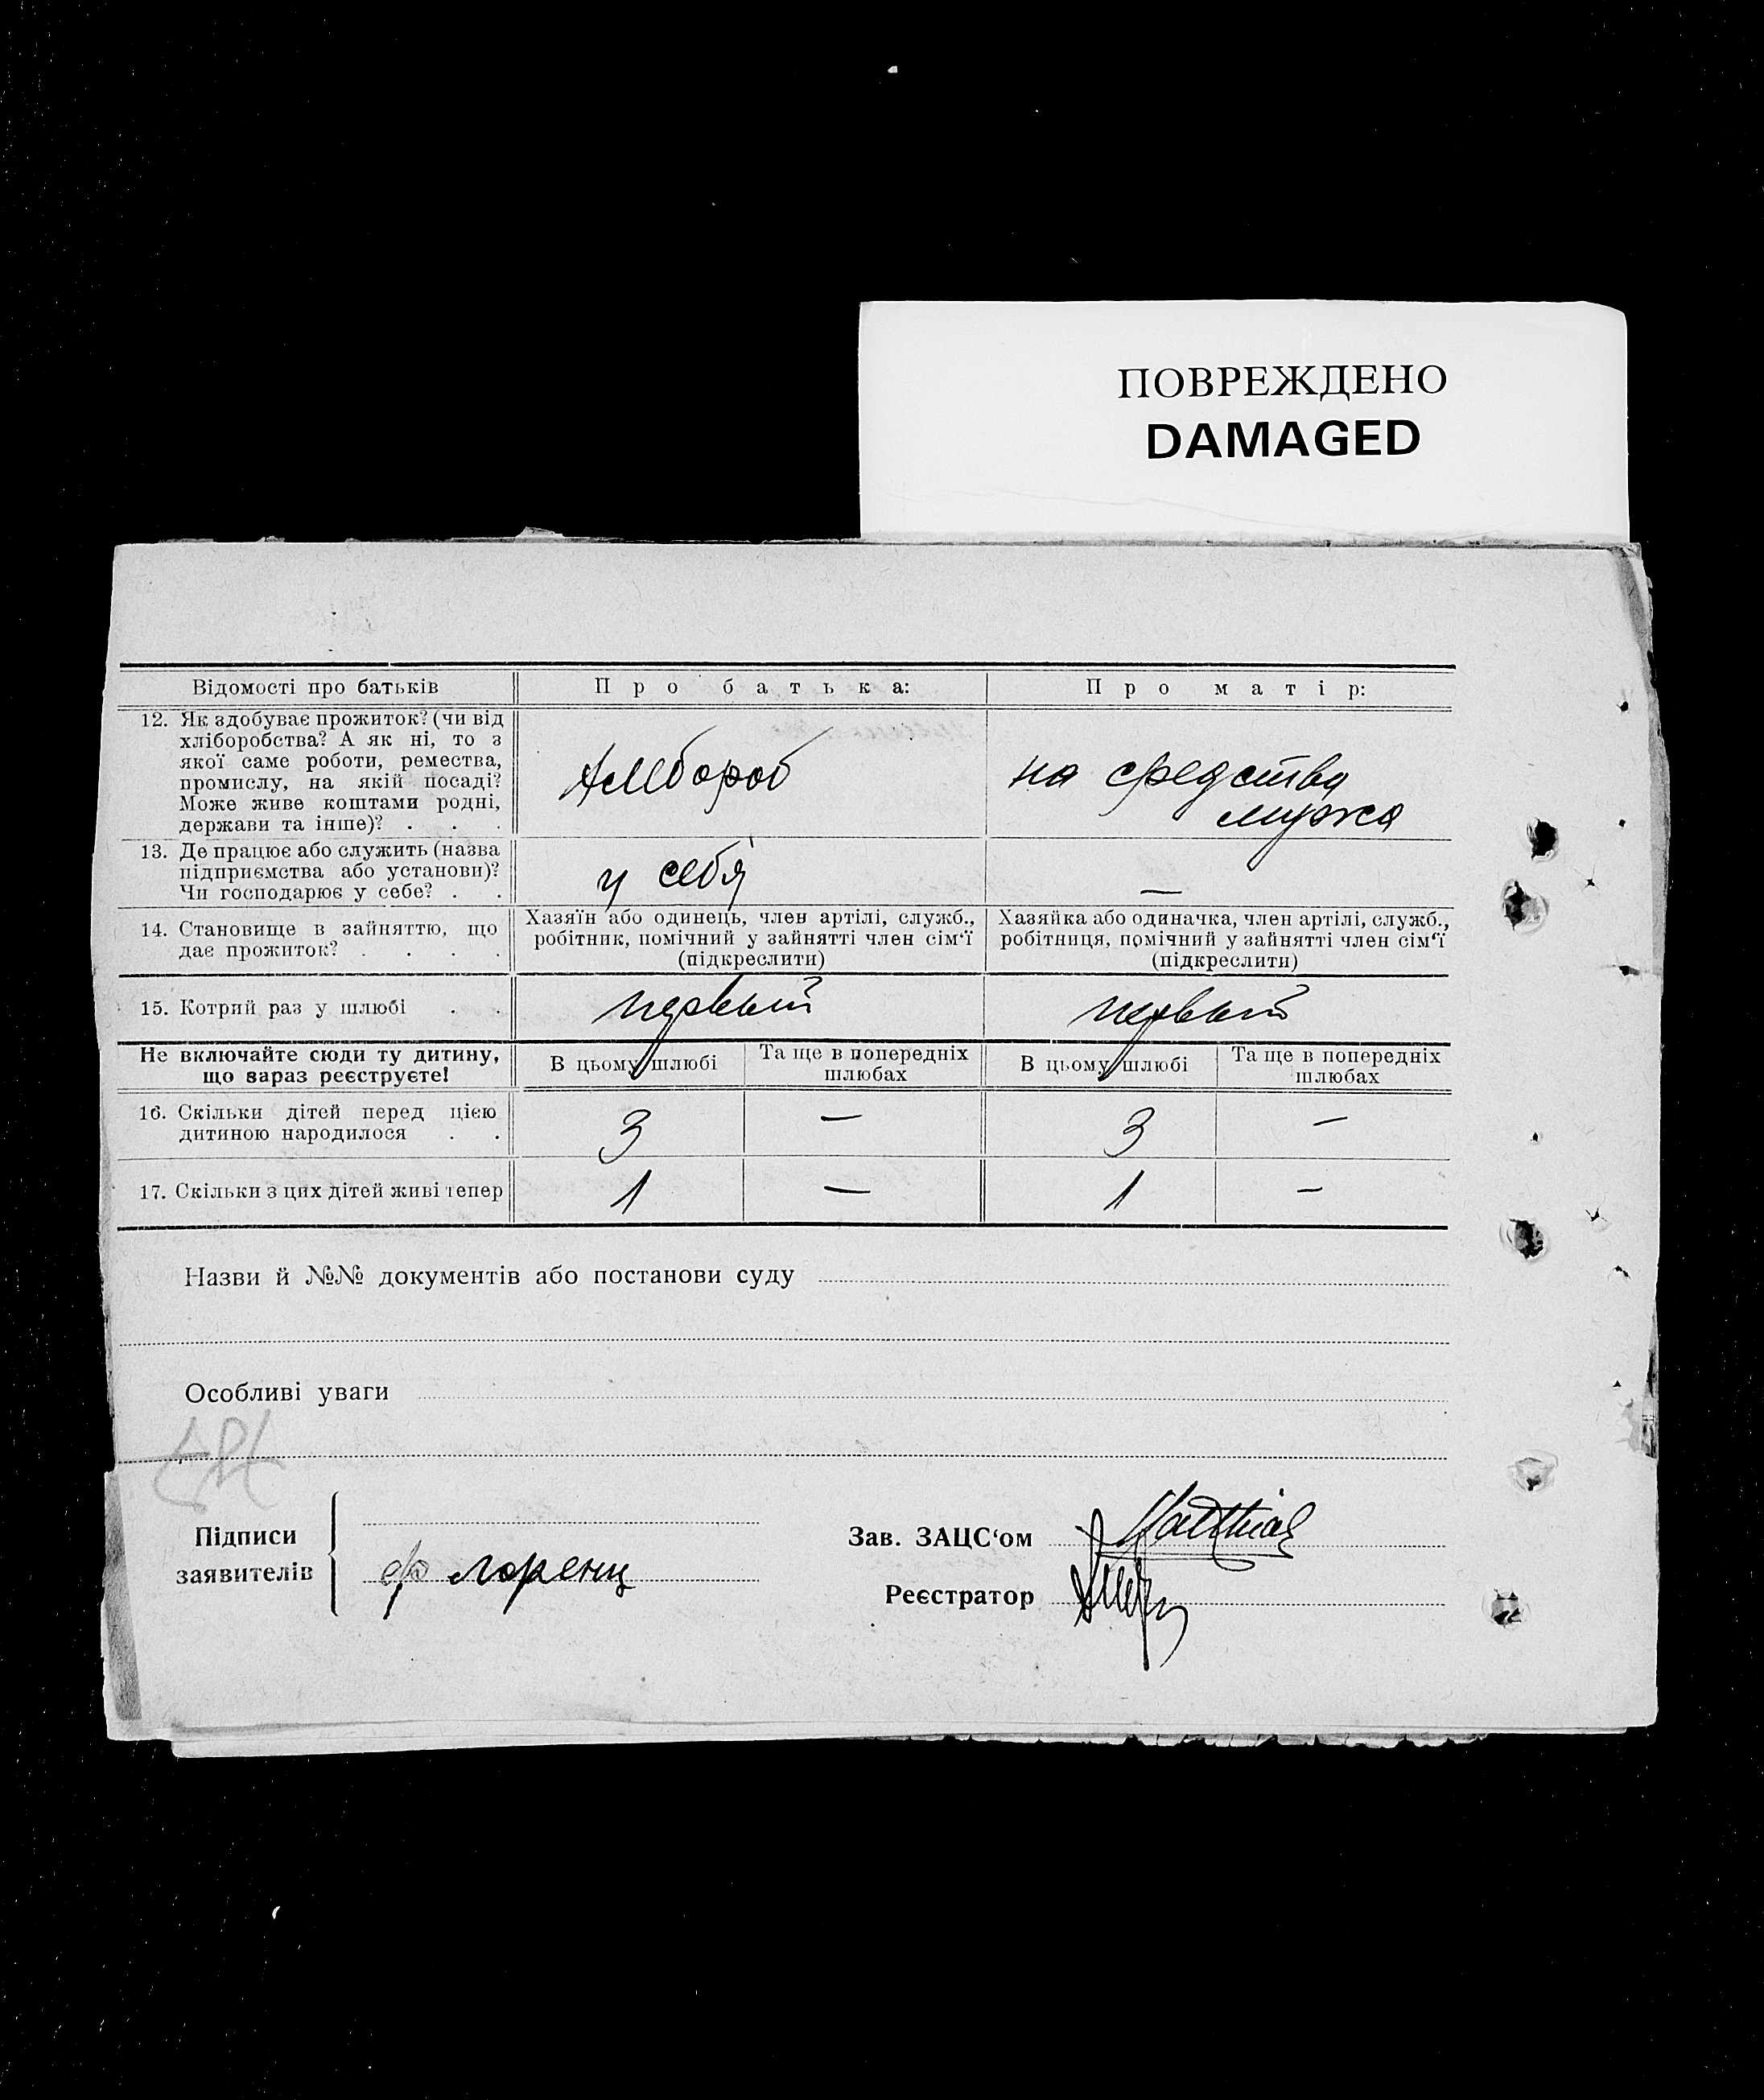 ПОВРЕЖДЕНО
DAMAGED
Відомості про батьків
Про батька:
Про матір:
12. Як здобуває прожиток? (чи від
хліборобства? А як ні, то з
якої саме роботи, ремества,
промислу, на якій посаді?
Може живе коштами родні,
держави та інше)? . . .
Хлібороб
на средства
мужа
13. Де працює або служить (назва
підприємства або установи)?
Чи господарює у себе? . .
у себя
—
14. Становище в зайняттю, що
дає прожиток? . . . .
Хазяїн або одинець, член артілі, служб.,
робітник, помічний у зайнятті член сім'ї
(підкреслити)
Хазяйка або одиначка, член артілі, служб.,
робітниця, помічний у зайнятті член сім'ї
(підкреслити)
15. Котрий раз у шлюбі . .
первый
первый
Не включайте сюди ту дитину,
що зараз реєструєте!
В цьому шлюбі
Та ще в попередніх
шлюбах
В цьому шлюбі
Та ще в попередніх
шлюбах
16. Скільки дітей перед цією
дитиною народилося . .
3
—
3
—
17. Скільки з цих дітей живі тепер
1
—
1
—
Назви й №№ документів або постанови суду
Особливі уваги
Підписи
заявителів
лоренц
Зав. ЗАЦС'ом
Matthias
Реєстратор